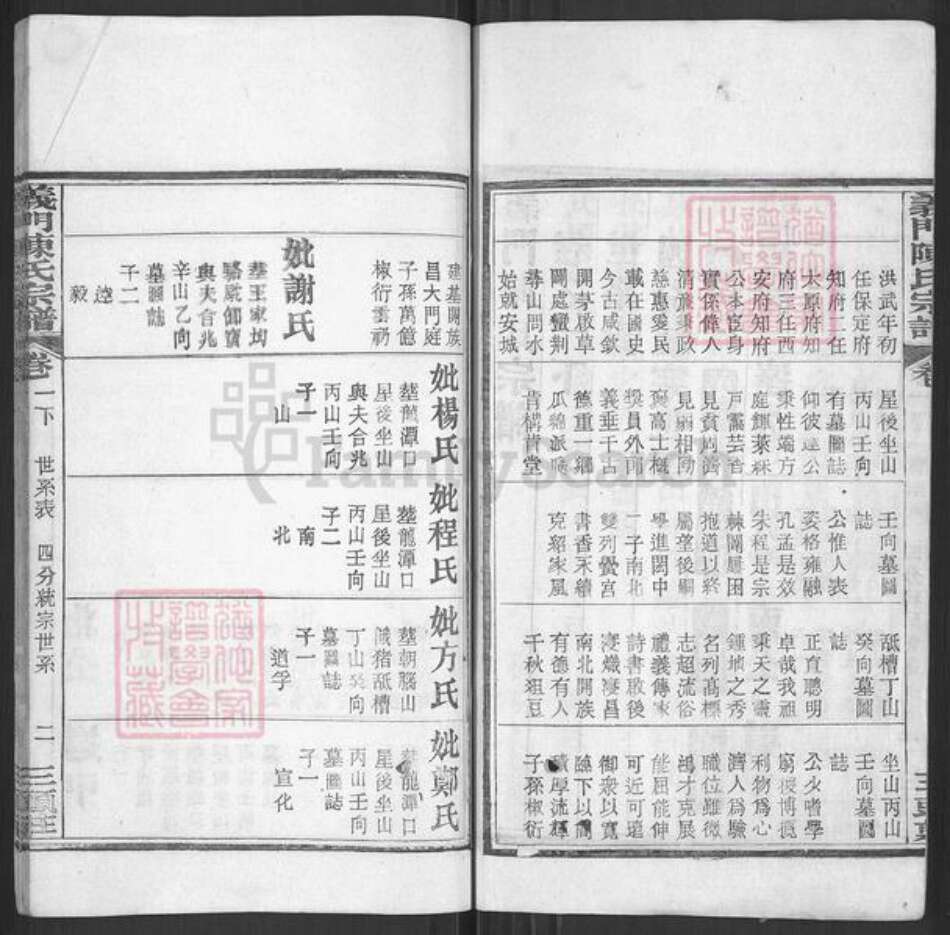 義門陳氏宗譜
卷
洪武年初
任保定府
知府二任
太原府知
府三任西
安府知府
公本宦身
實係偉人
清廉秉政
慈惠愛民
載在國史
今古咸欽
開茅啟草
闢處蠻荆
尋山問水
始就安城
星後坐山
丙山壬向
有墓圖誌
仰彼達公
秉性端方
庭輝萊綵
戶靄芸香
見貧周濟
見弱相助
褒高士概
獎員外郎
義垂千古
德重一鄉
瓜綿派衍
肯構貲堂
壬向墓圖
誌
公惟人表
姿格雍融
孔孟是效
朱程是宗
棘闈屢困
抱道以終
屬望後嗣
學進閎中
一子南北
雙列黌宮
書香禾續
克紹家風
舐槽丁山
癸向墓圖
誌
正直聰明
卓哉我祖
秉天之靈
鍾地之秀
名列高標
志超流俗
禮義傳家
詩書啟後
寖熾寖昌
南北開族
有德有人
千秋俎豆
坐山丙山
壬向墓圖
誌
公少嗜學
窮搜博覽
利物爲心
濟人爲驗
職位雖微
鴻才克展
能屈能伸
可近可遠
御衆以寬
臨下以簡
積厚流輝
子孫椒衍
建基開族
昌大門庭
子孫萬億
椒衍雲礽
妣謝氏
塟王家坳
與夫合兆
辛山乙向
墓圖誌
子二
逵
毅
妣楊氏
塟龍潭口
星後坐山
與夫合兆
丙山壬向
子一
山
妣程氏
塟龍潭口
星後坐山
丙山壬向
子二
南
北
妣方氏
塟朝腦山
餓猪舐槽
丁山癸向
墓圖誌
子一
道孚
妣鄭氏
塟龍潭口
星後坐山
丙山壬向
墓圖誌
子一
宣化
義門陳氏宗譜
卷一下
世系表
四分統宗世系
二
FamilySearch